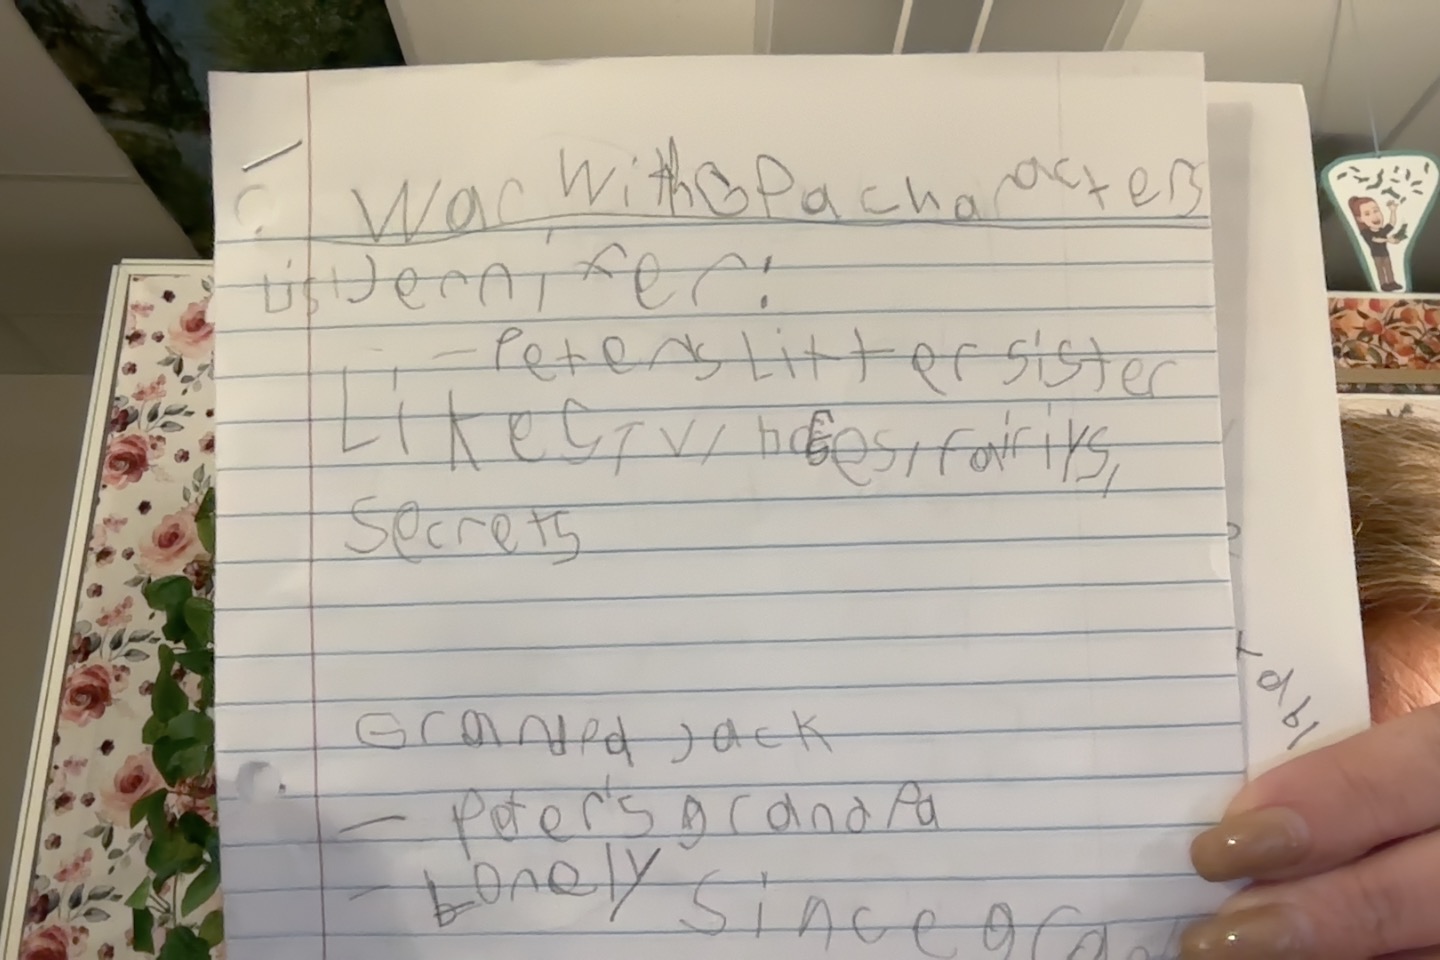 War With GPa characters
list Jennifer:
- Peters Litter sister
Likes, TV, bases, fairiys,
Secrets
Grandpa Jack
- Peter's grandpa
- Lonely Since gran